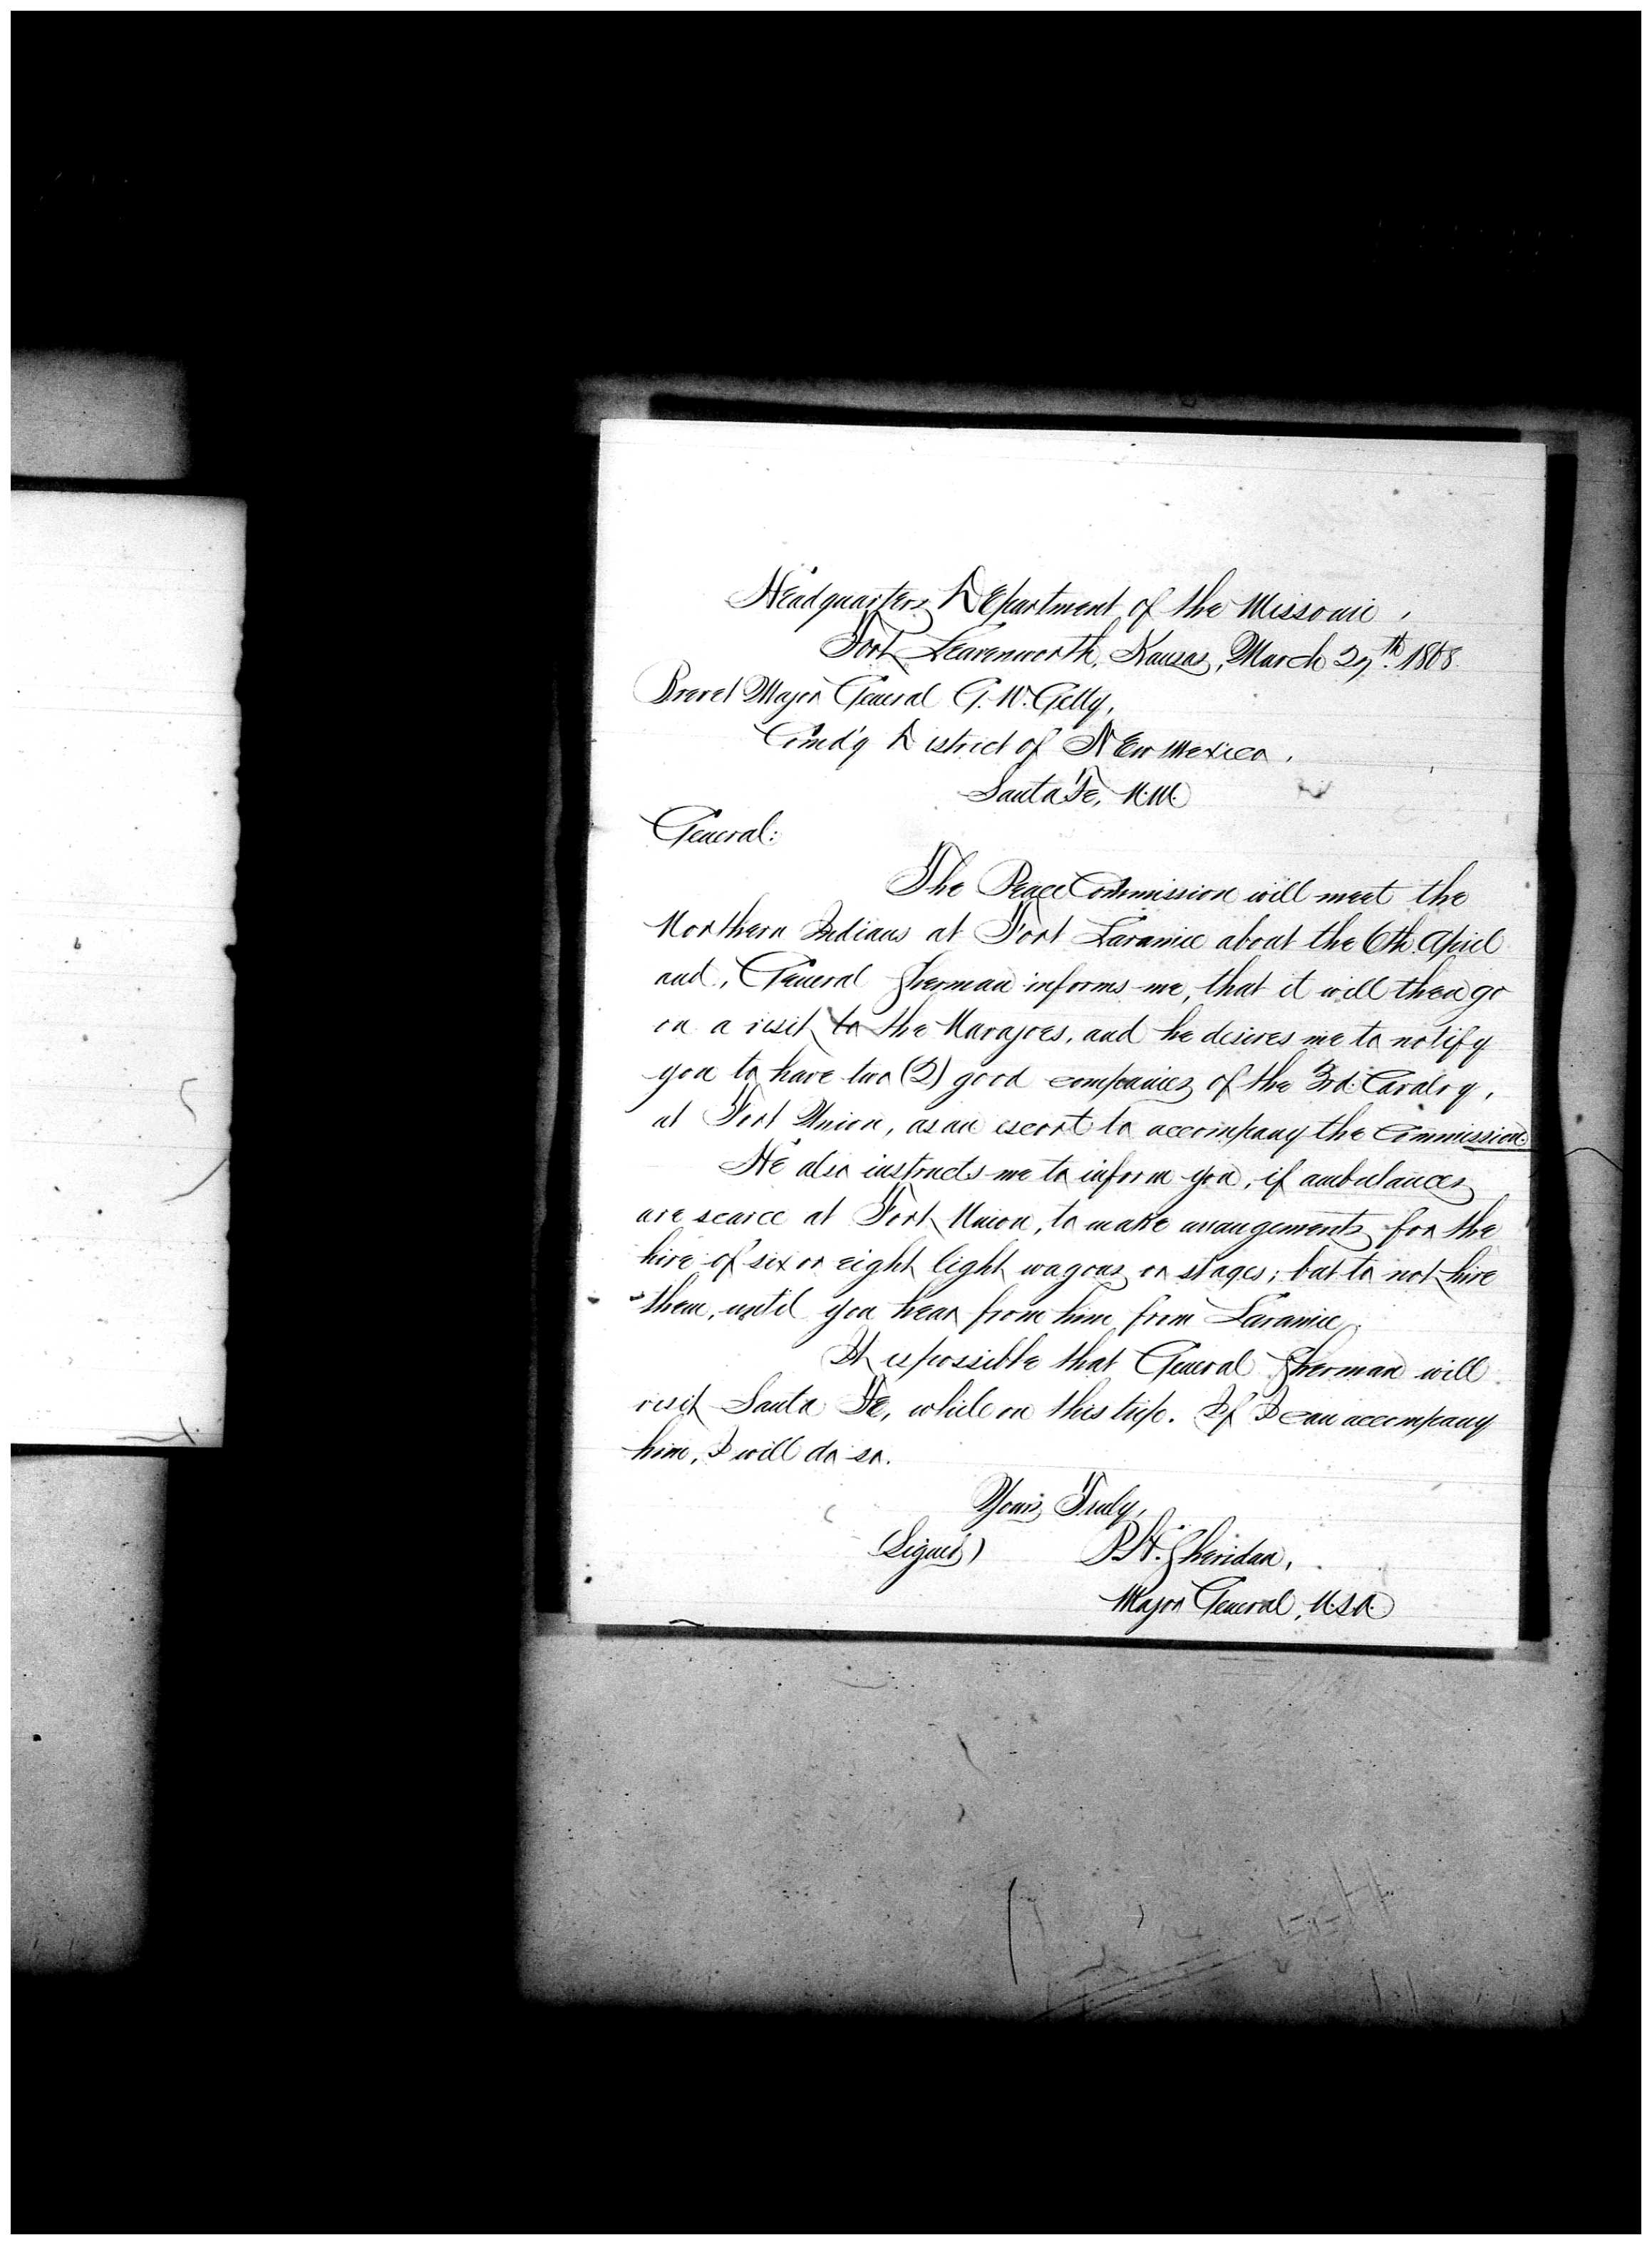 Headquarters Department of the Missouri,
Fort Leavenworth, Kansas, March 27th. 1868.
Brevet Major General G. W. Getty,
Comd'g District of New Mexico.
Santa Fe, N.M.
General:
The Peace Commission will meet the
Northern Indians at Fort Laramie about the 6th. April
and, General Sherman informs me, that it will then go
on a visit to the Navajoes, and he desires me to notify
you to have two (2) good companies of the 3rd. Cavalry,
at Fort Union, as an escort to accompany the Commission.
He also instructs me to inform you, if ambulances
are scarce at Fort Union, to make arrangements for the
hire of six or eight light wagons or stages; but to not hire
them, until you hear from him from Laramie.
It is possible that General Sherman will
visit Santa Fe, while on this trip. If I can accompany
him, I will do so.
Yours Truly,
(Signed) P.H. Sheridan,
Major General, U.S.A.